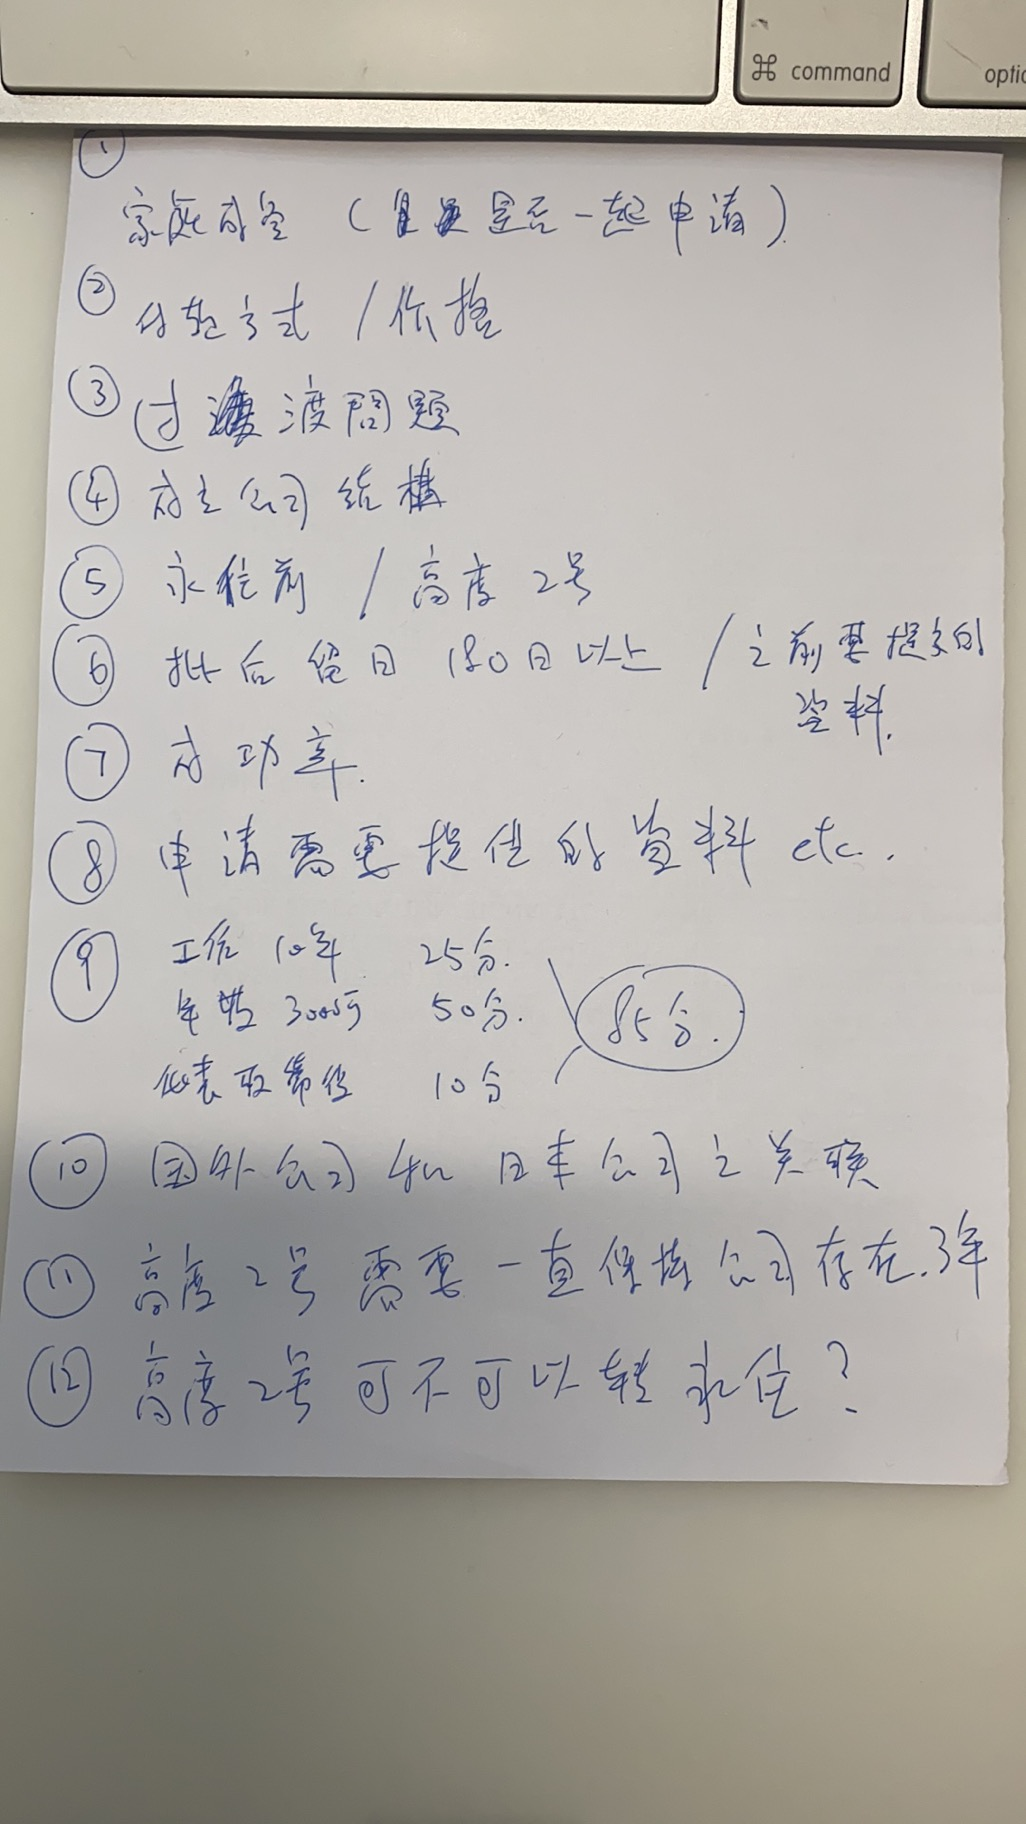 ⌘ command
optio
①
家庭成员 ( 是否一起申请 ).
② 付款方式 / 价格
③ 过渡問題
④ 成立公司结構
⑤ 永住前 / 高度2号
⑥ 批后留日180日以上 / 之前要提交的
资料.
⑦ 成功率.
⑧ 申请需要提供的資料 etc.
⑨ 工作10年 25分.
年薪3000万 50分. 85分.
代表取締役 10分
⑩ 国外公司和日本公司之关联
⑪ 高度2号需要一直保持公司存在.3年
⑫ 高度2号可不可以转永住?